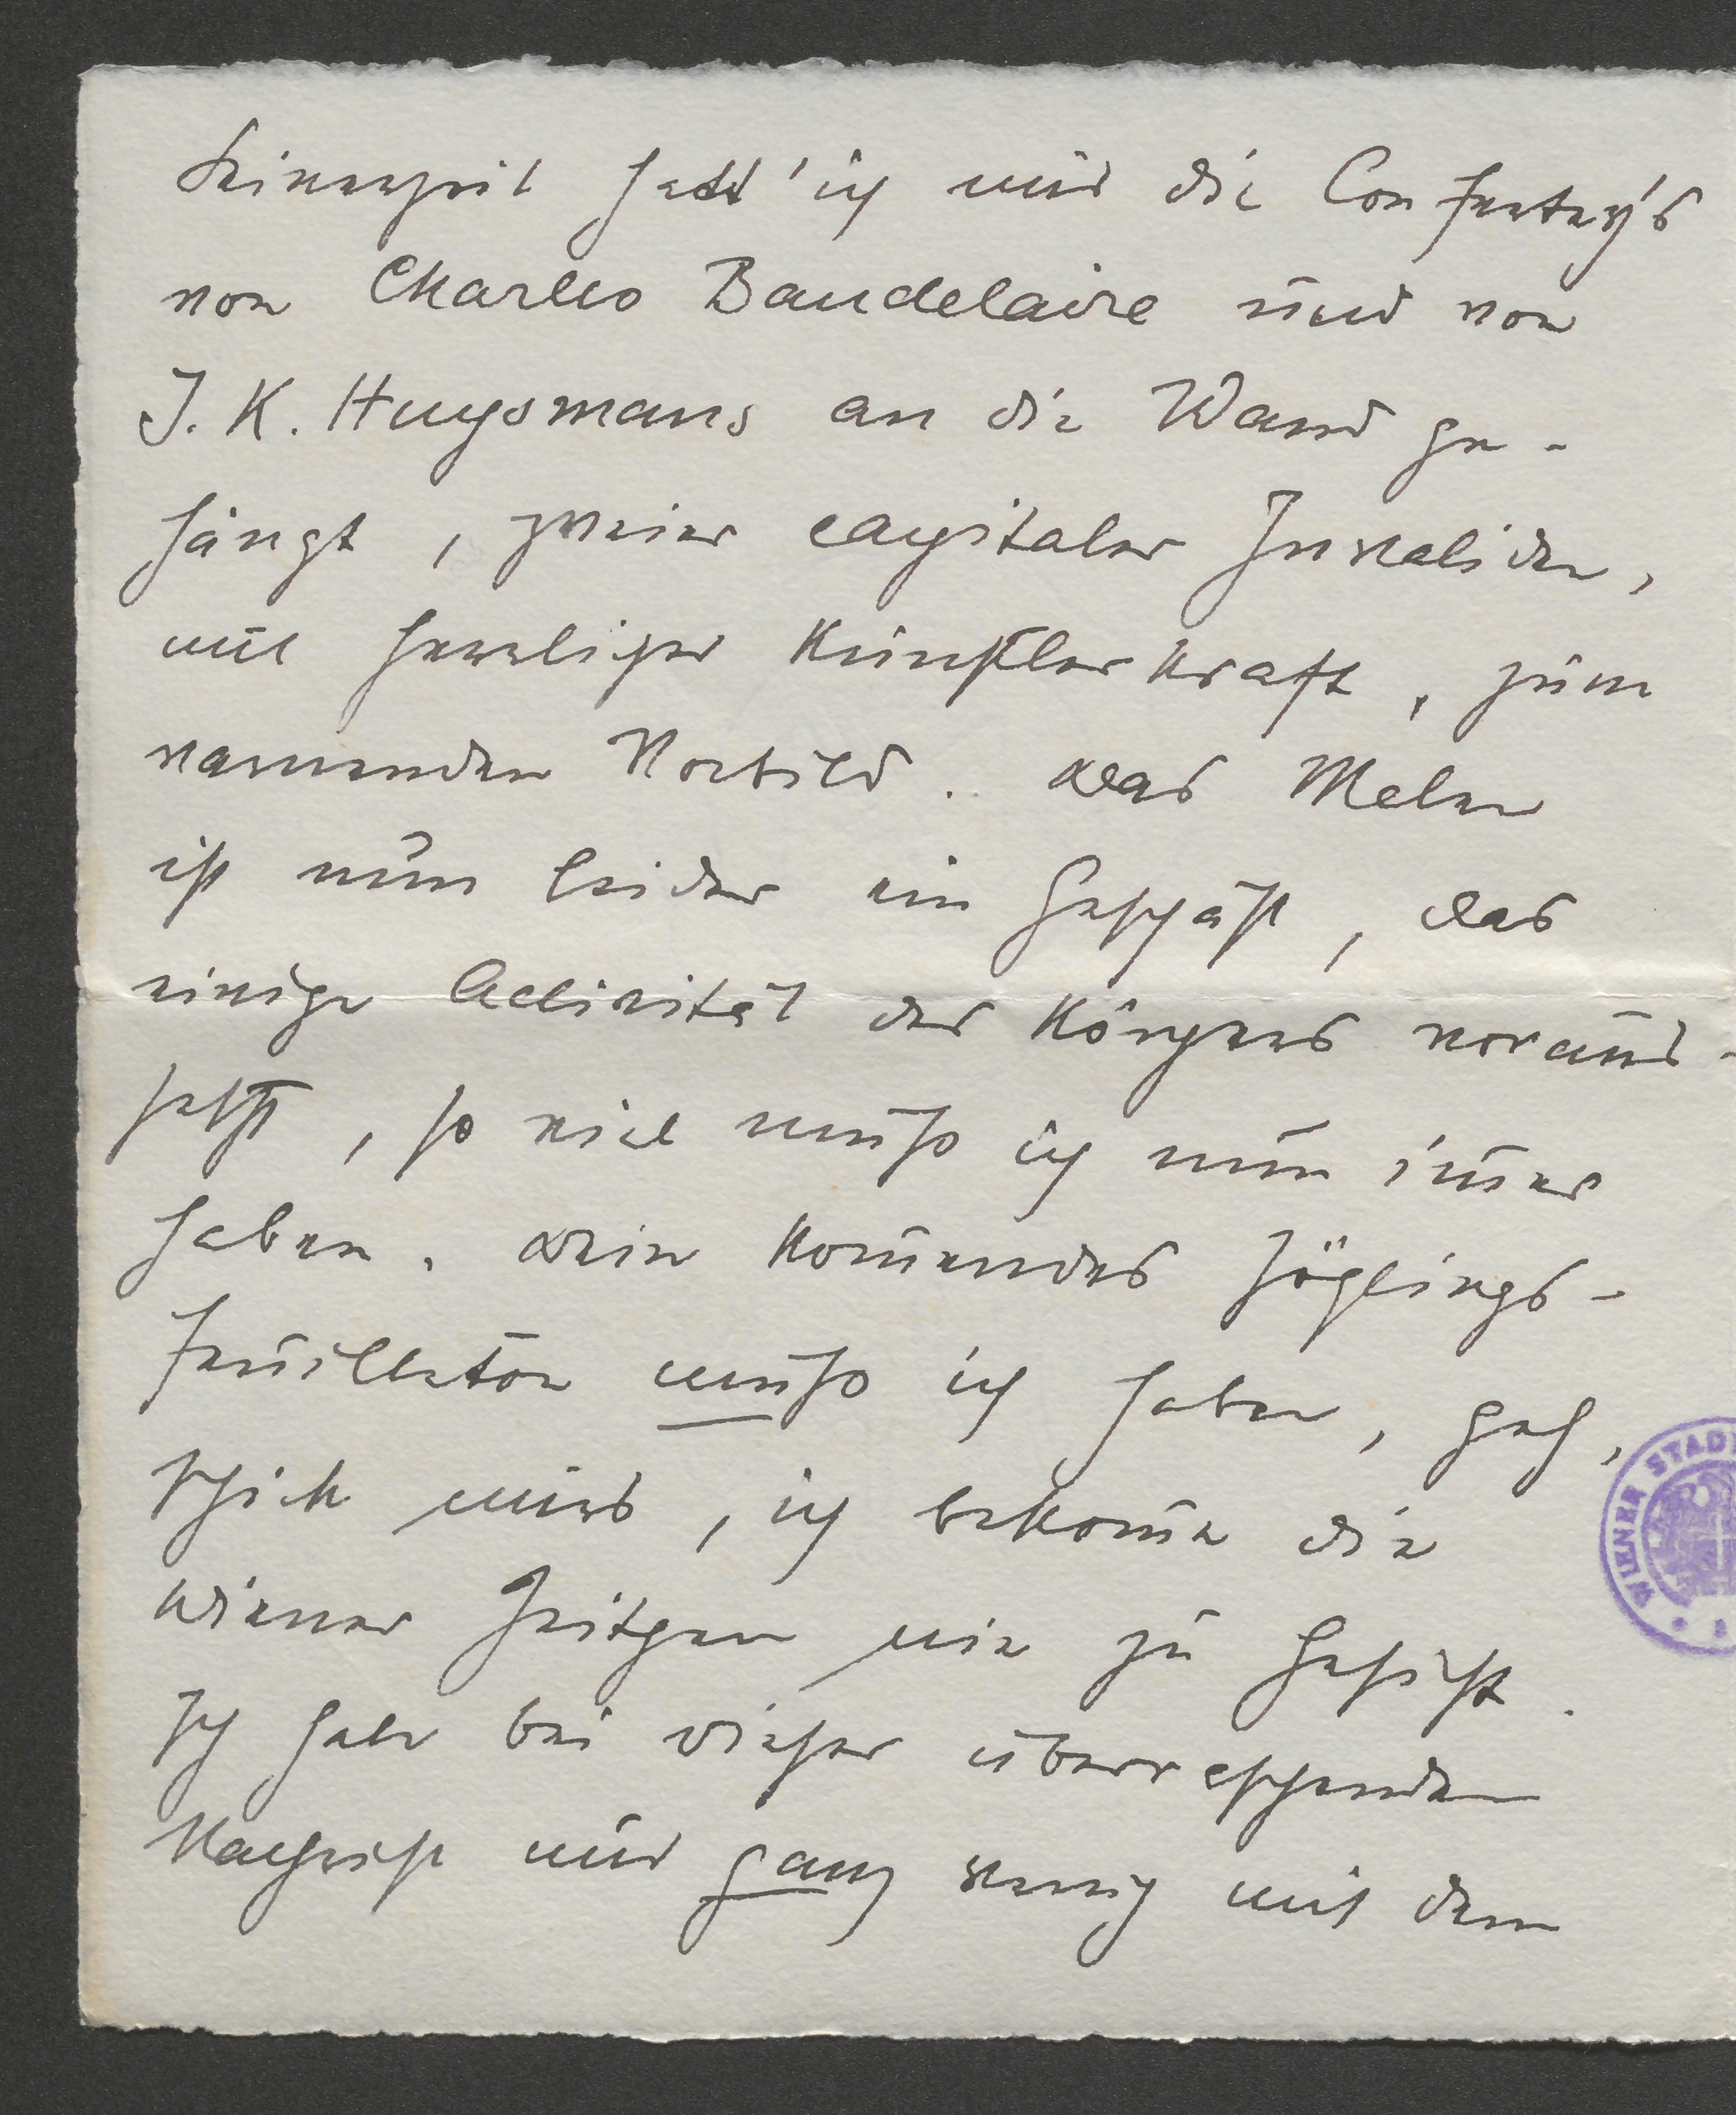 Seinerzeit hatt' ich mir die Conterfey's
von Charles Baudelaire und von
J. K. Huysmans an die Wand ge-
hängt, zweier capitaler Invaliden,
mit herrlicher Künstlerkraft, zum
warnenden Vorbild. Das Malen
ist nun leider ein Geschäft, das
einige Activität des Körpers voraus-
setzt, so viel muss ich nun im̅er
haben. Dein kom̅endes Zöglings-
Feuilleton muss ich haben, geh,
schick mirs, ich bekom̅e die
Wiener Zeitgen nie zu Gesicht.
Ich hab bei dieser überraschenden
Nachricht nur ganz wenig mit dem
WIENER STAD